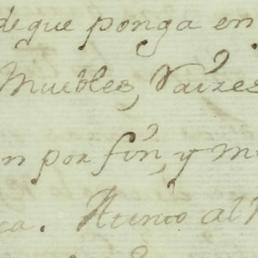 de que ponga en
Muebles, Raizes
n por fin, y m
ca. Atento al